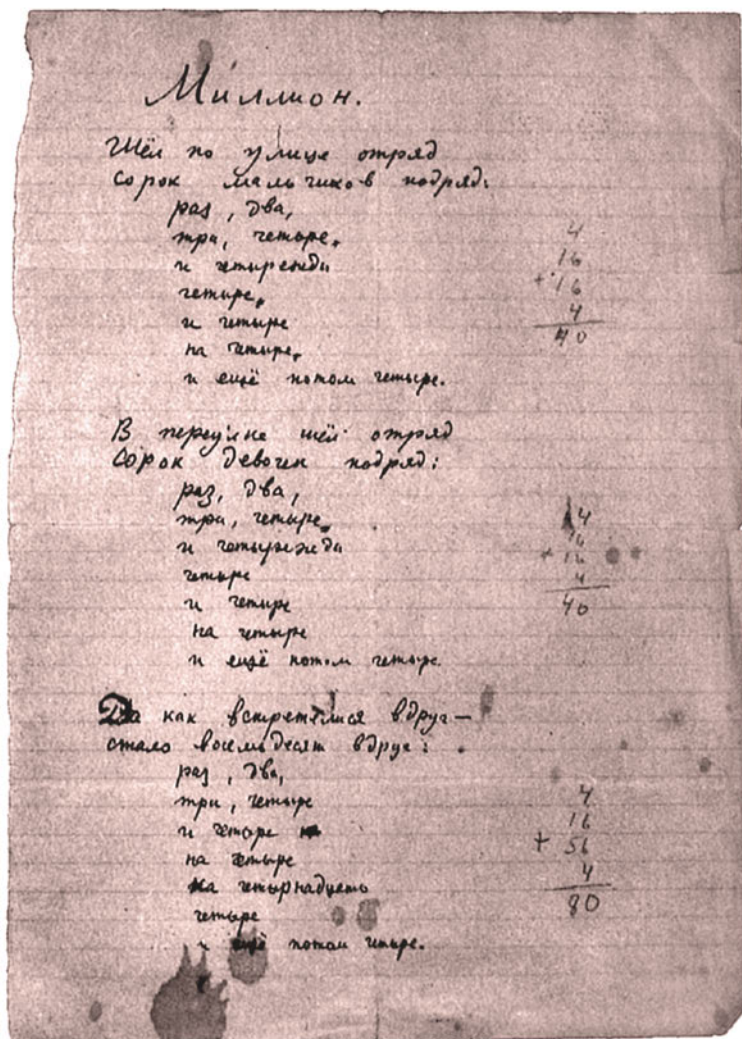 Миллион.
Шёл по улице отряд
сорок мальчиков подряд:
раз, два,
три, четыре,
и четырежды
четыре,
и четыре
на четыре,
и ещё потом четыре.
4
16
+ 16
4
40
В переулке шёл отряд
сорок девочек подряд:
раз, два,
три, четыре,
и четырежды
четыре
и четыре
на четыре
и ещё потом четыре.
4
16
+ 16
4
40
Да как встретилися вдруг —
стало восемьдесят вдруг:
раз, два,
три, четыре
и четыре
на четыре
на четырнадцать
четыре
и ещё потом четыре.
4
16
+ 56
4
80